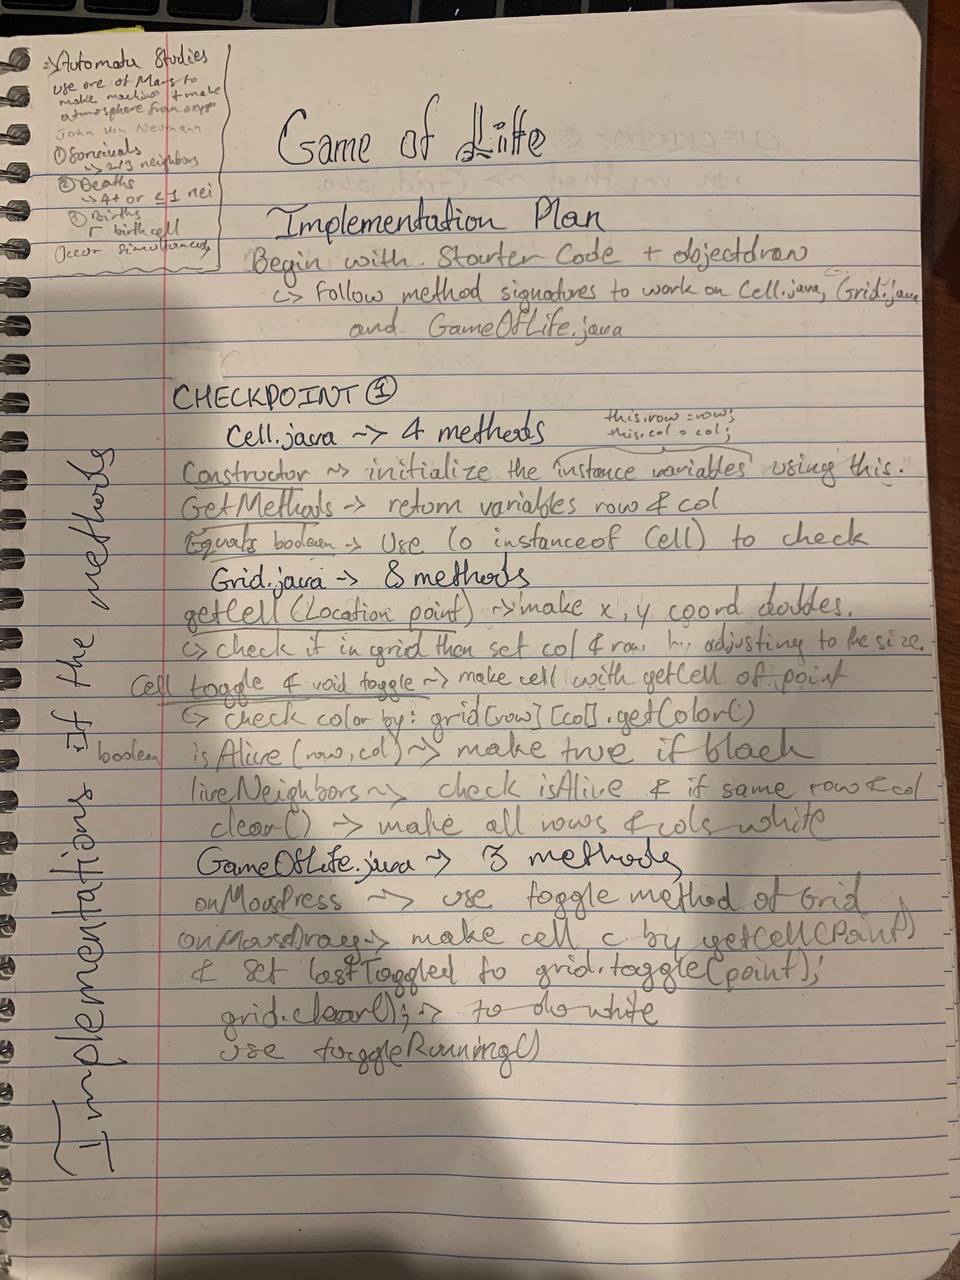 →Automata Studies
use ore of Mars to
make machine + make
atmosphere from oxygen
John Von Neumann
① Survivals
↳ 2/3 neighbors
② Deaths
↳ 4+ or ≤ 1 nei
③ Births
birth cell
Occur simultaneously
Game of Life
Implementation Plan
Begin with Starter Code + objectdraw
↳ Follow method signatures to work on Cell.java, Grid.java
and GameOfLife.java
CHECKPOINT ①
Cell.java -> 4 methods
this.row = row;
this.col = col;
Constructor ~> initialize the instance variables using this.
GetMethods -> return variables row & col
Equals boolean -> Use (o instanceof Cell) to check
Grid.java -> 8 methods
getCell (Location point) ~> make x, y coord doubles.
↳ check if in grid then set col & row by adjusting to the size.
Cell toggle & void toggle ~> make cell with getCell of point
↳ check color by: grid[row][col].getColor()
boolean isAlive (row, col) ~> make true if black
liveNeighbors ~> check isAlive & if same row & col
clear() -> make all rows & cols white
GameOfLife.java ~> 3 methods
onMousPress ~> use toggle method of Grid
onMouseDrag -> make cell c by getCell(Point)
& set lastToggled to grid.toggle(point);
grid.clear(); ~> to do white
use toggleRunning()
Implementations of the methods